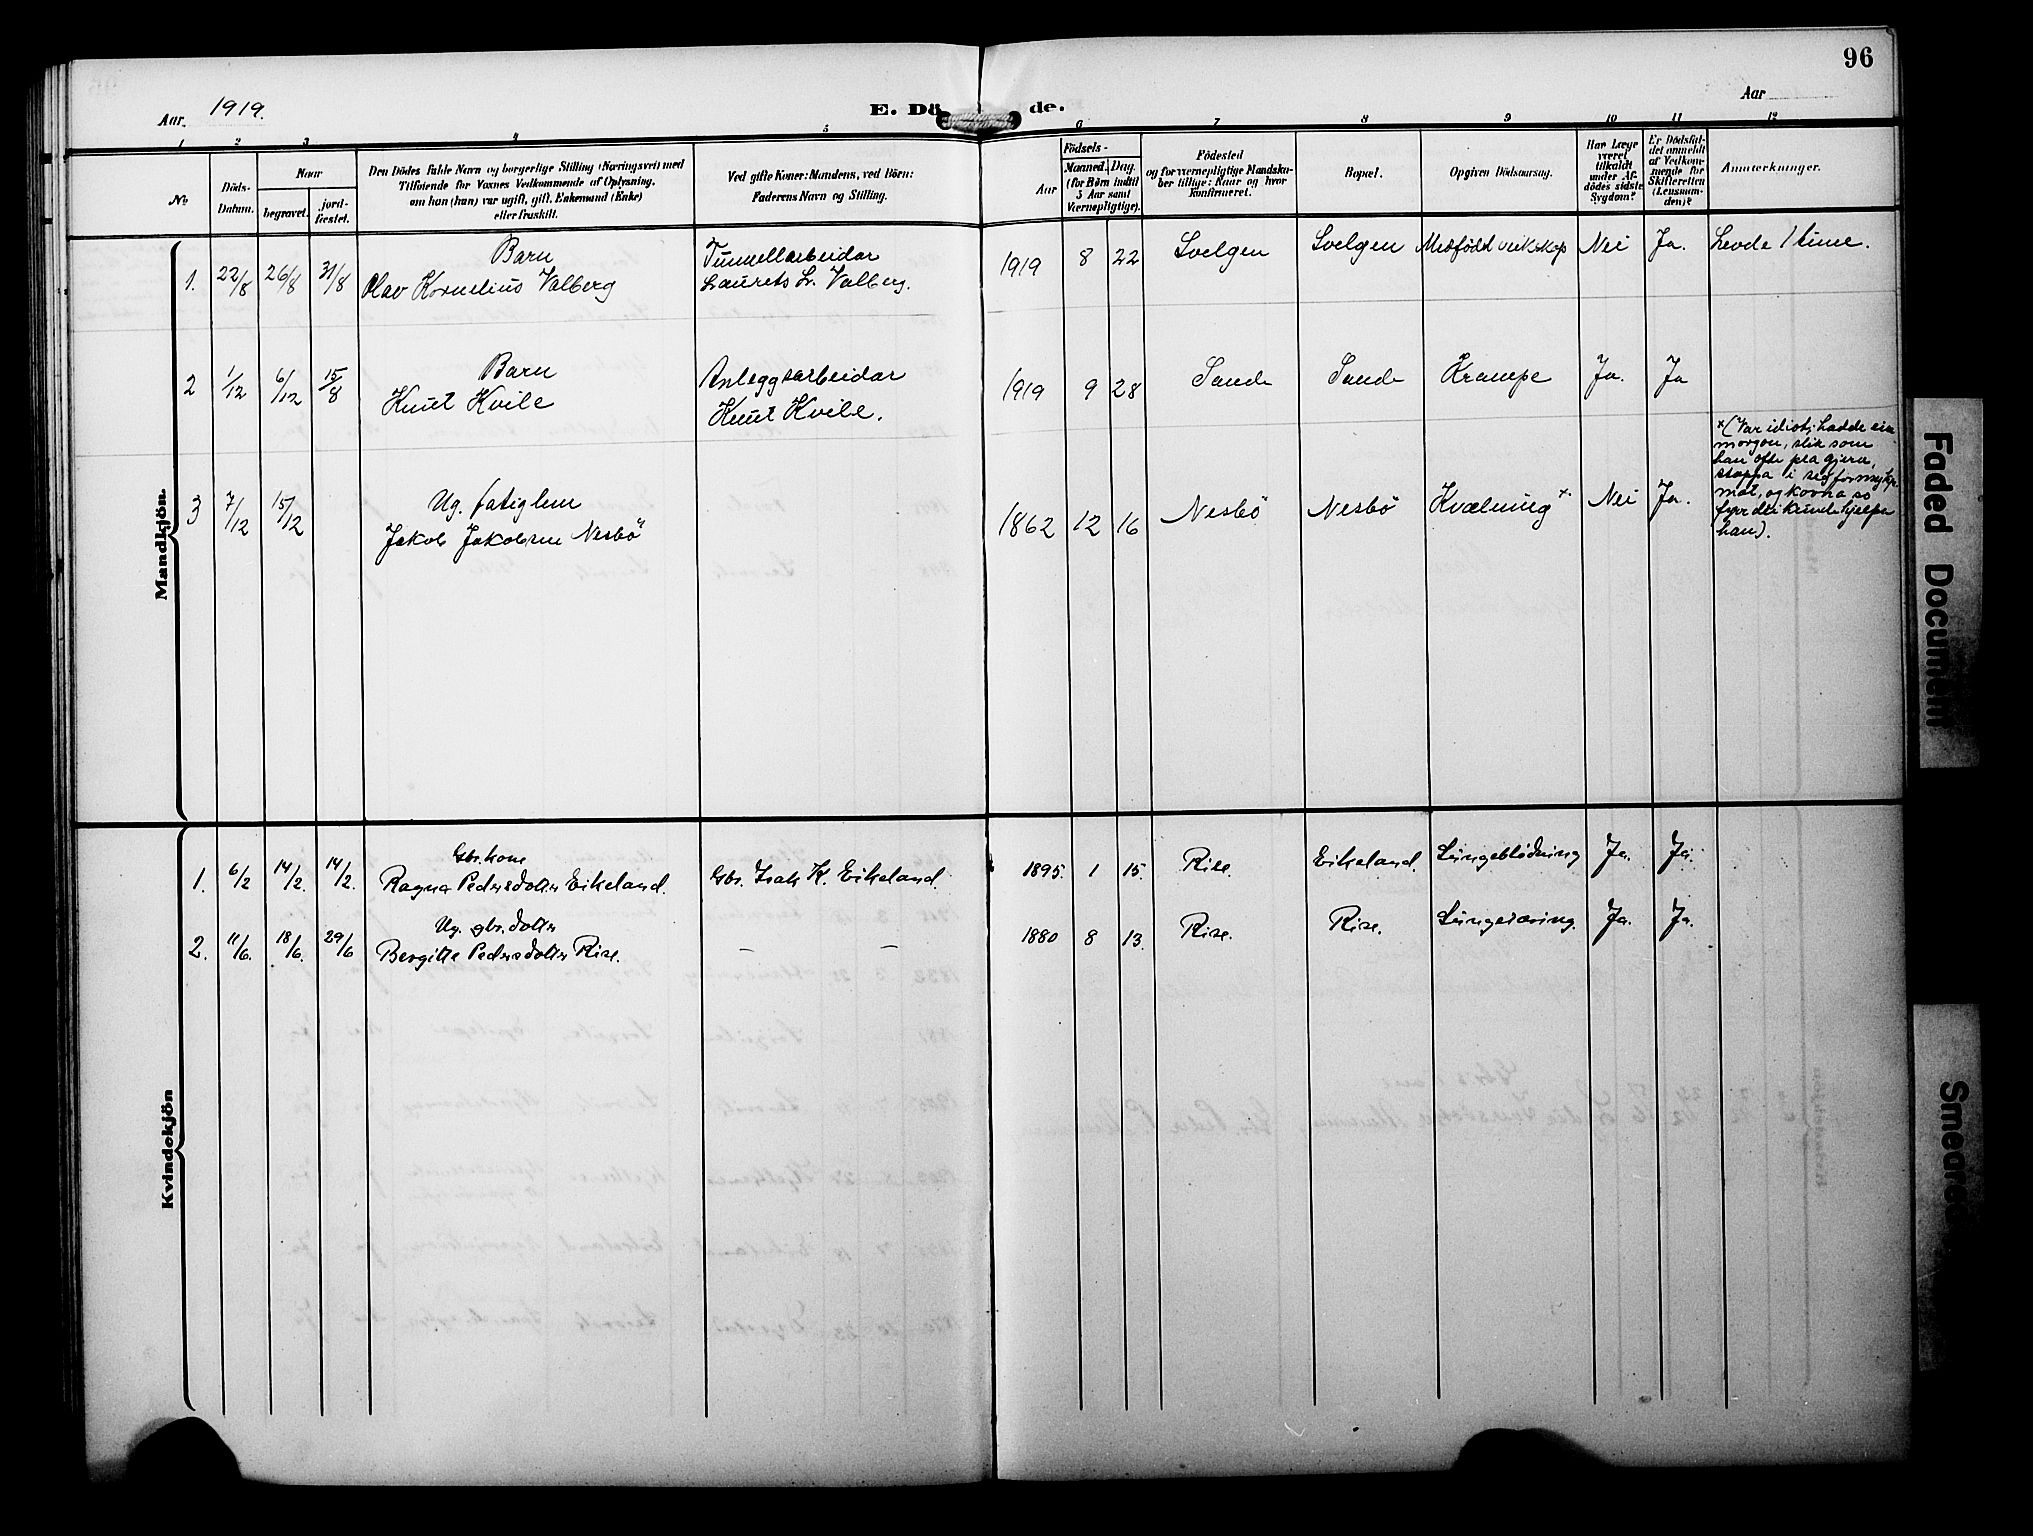 96
Aar. 1919.
E. Dö de.
Aar
1 2 3 4 5 6 7 8 9 10 11 12
No
Döds-
Datum.
Naar
begravet.
jord-
fæstet.
Den Dödes fulde Navn og borgerlige Stilling (Næringsvei) med
Tilföiende for Voxnes Vedkommende af Oplysning,
om han (hun) var ugift, gift, Enkemand (Enke)
eller fraskilt.
Ved gifte Koner: Mandens, ved Börn:
Faderens Navn og Stilling.
Födsels-
Aar
Maaned. Dag.
(for Börn indtil
5 Aar samt
Værnepligtige).
Födested
og for værnepligtige Mandska-
ber tillige: Naar og hvor
konfirmeret.
Bopæl.
Opgiven Dödsaarsag.
Har Læge
været
tilkaldt
under Af-
dödes sidste
Sygdom?
Er Dödsfal-
det anmeldt
af Vedkom-
mende for
Skifteretten
(Lensman-
den)?
Anmærkninger.
Mandkjön.
Barn
1. 22/8 26/8 31/8 Olav Kornelius Valberg
Tunnellarbeidar
Laurets L. Valberg.
1919 8 22 Svelgen Svelgen Medfødt veikskap Nei Ja. Levde 1 time.
Barn
2 1/12 6/12 15/8 Knut Kvile
Anleggsarbeidar
Knut Kvile.
1919 9 28 Sande Sande Krampe Ja. Ja
Ug. fatiglem
3 7/12 15/12 Jakob Jakobsen Nesbö
1862 12 16 Nesbö Nesbö Kvælning x Nei Ja.
x (Var idiot; hadde ein
morgon, slik som
han ofte pla gjera,
stappa i seg formykje
mat, og kovna so
fyrr dei kunde hjelpa
han).
Kvindekjön
Gbr. kone
1. 6/2 14/2. 14/2. Ragna Pedersdotter Eikeland.
Gbr. Isak K. Eikeland.
1895. 1 15. Rise. Eikeland. Lungeblödning Ja. Ja.
Ug. gbr. dotter
2. 11/6. 18/6. 29/6 Bergitte Pedersdotter Rise.
— —
1880 8 13. Rise. Rise. Lungetæring. Ja. Ja.
Faded Document
Smeared